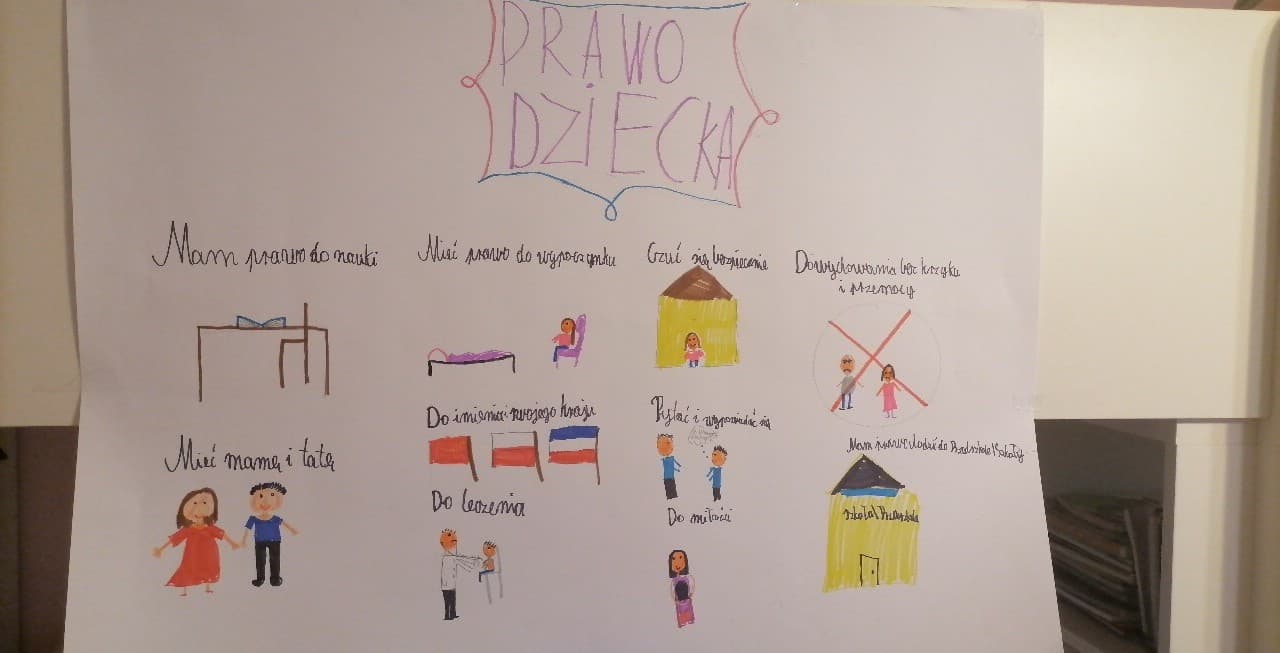 PRAWO
DZIECKA
Mam prawo do nauki
Mieć prawo do wypoczynku
Czuć się bezpiecznie
Do wychowania bez krzyku
i przemocy
Mieć mamę i tatę
Do imienia i swojego kraju
Do leczenia
Pytać i wypowiadać się
Do miłości
Mam prawo chodzić do Przedszkola/Szkoły
Szkoła/Przedszkole